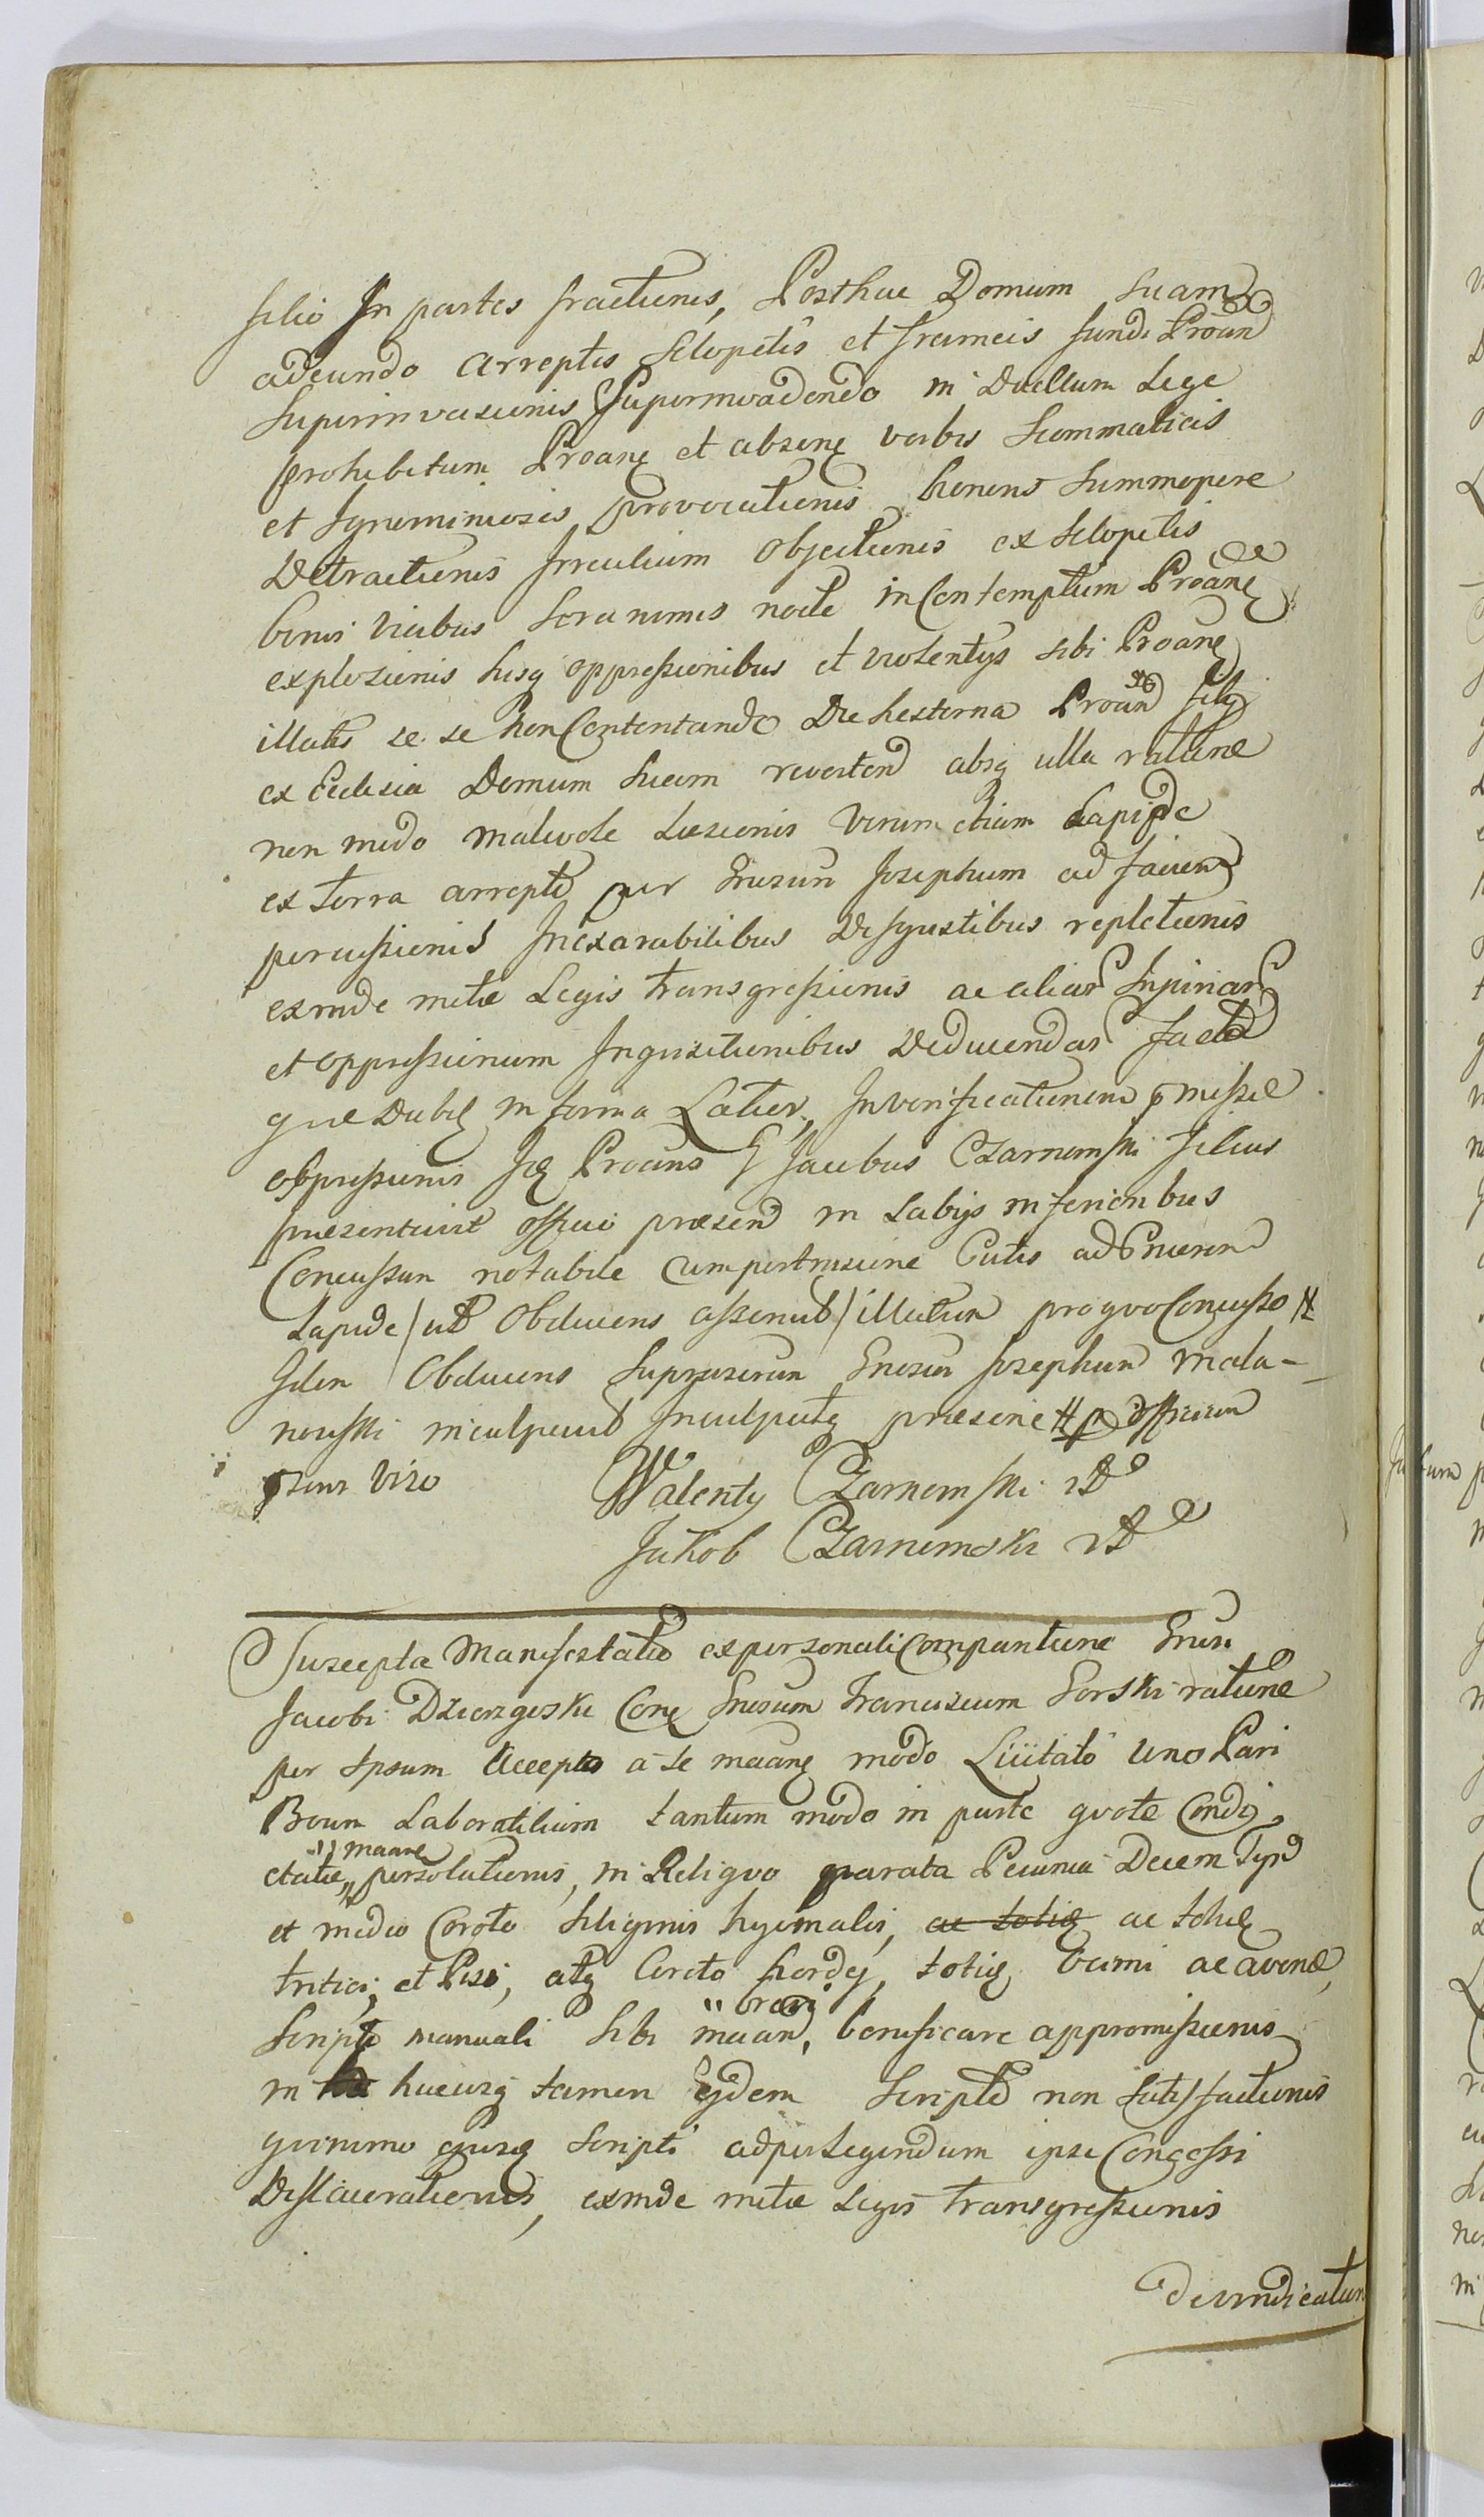 filio In partes fractionis, Posthac Domum suam
adeundo arreptis sclopetis et frameis fundi Proan
superinvasionis superinvadendo in Duellum Lege
prohibitum Proane et absene verbis scommaticis
et Ignominiosis provocationis honoris summopere
Detractionis Irrculium Objectionis ex sclopetis
binis vicibus sera nimis nocte in Contemptum Proane
explosionis hisq oppressionibus et violentijs sibi Proane
illatis se se non Contentando Die hesterna Proan filij
ex Eclesia Domum suam revertend absq ulla ratione
non modo malivole Læsionis verum etiam Lapide
ex terra arrepto per Gnosum Josephum ad faciem
percussionis Inexarabilibus Disgustibus repletionis
exinde metæ Legis transgressionis ac aliar Injuriar
et oppressionum Inquisitionibus Deducendar facto
que Dubit in forma Latior, In verificationem pmissæ
oppressionis Ide Proans G Jacobus Czarnomski filius
præsentavit officio præsen in Labijs inferioribus
Concussum notabile cum pertusione Cutis ad Cruorem
Lapide / ut Obducens asseruit / illatum pro quo Concusso #
Iden Obducens suprascrun Gnosum Josephum Mala-
nowski inculpavit Inculpatq præsene # p officium
psens viso Walenty Czarnomski
Jakob Czarnomski
Suscepta Manifestatio ex personali Comparitione Gnosi
Jacobi Dziergoski Cone Gnosum Franciscum Gorski ratione
per Ipsum Accepto a se maane modo Licitato uno Pari
Boum Laboratilium tantum modo in parte quote Condi
" maane
ctatæ " persolutionis, in Reliquo parata Pecunia Decem Typ
et medio Coroto siliginis hyemalis, ac totiq ac totiq
tritici, et Pisi, atq Coreto hordej, totiq Grani ac avenæ,
" oran
scripto manuali sibi maan, bonificare appromissionis
in hucusq tamen Ejdem scripto non satisfactionis
quinimo ejusq scripti ad perlegendum ipsi Concessi
Dislacerationis, exinde metæ Legis transgressionis
devindicatum